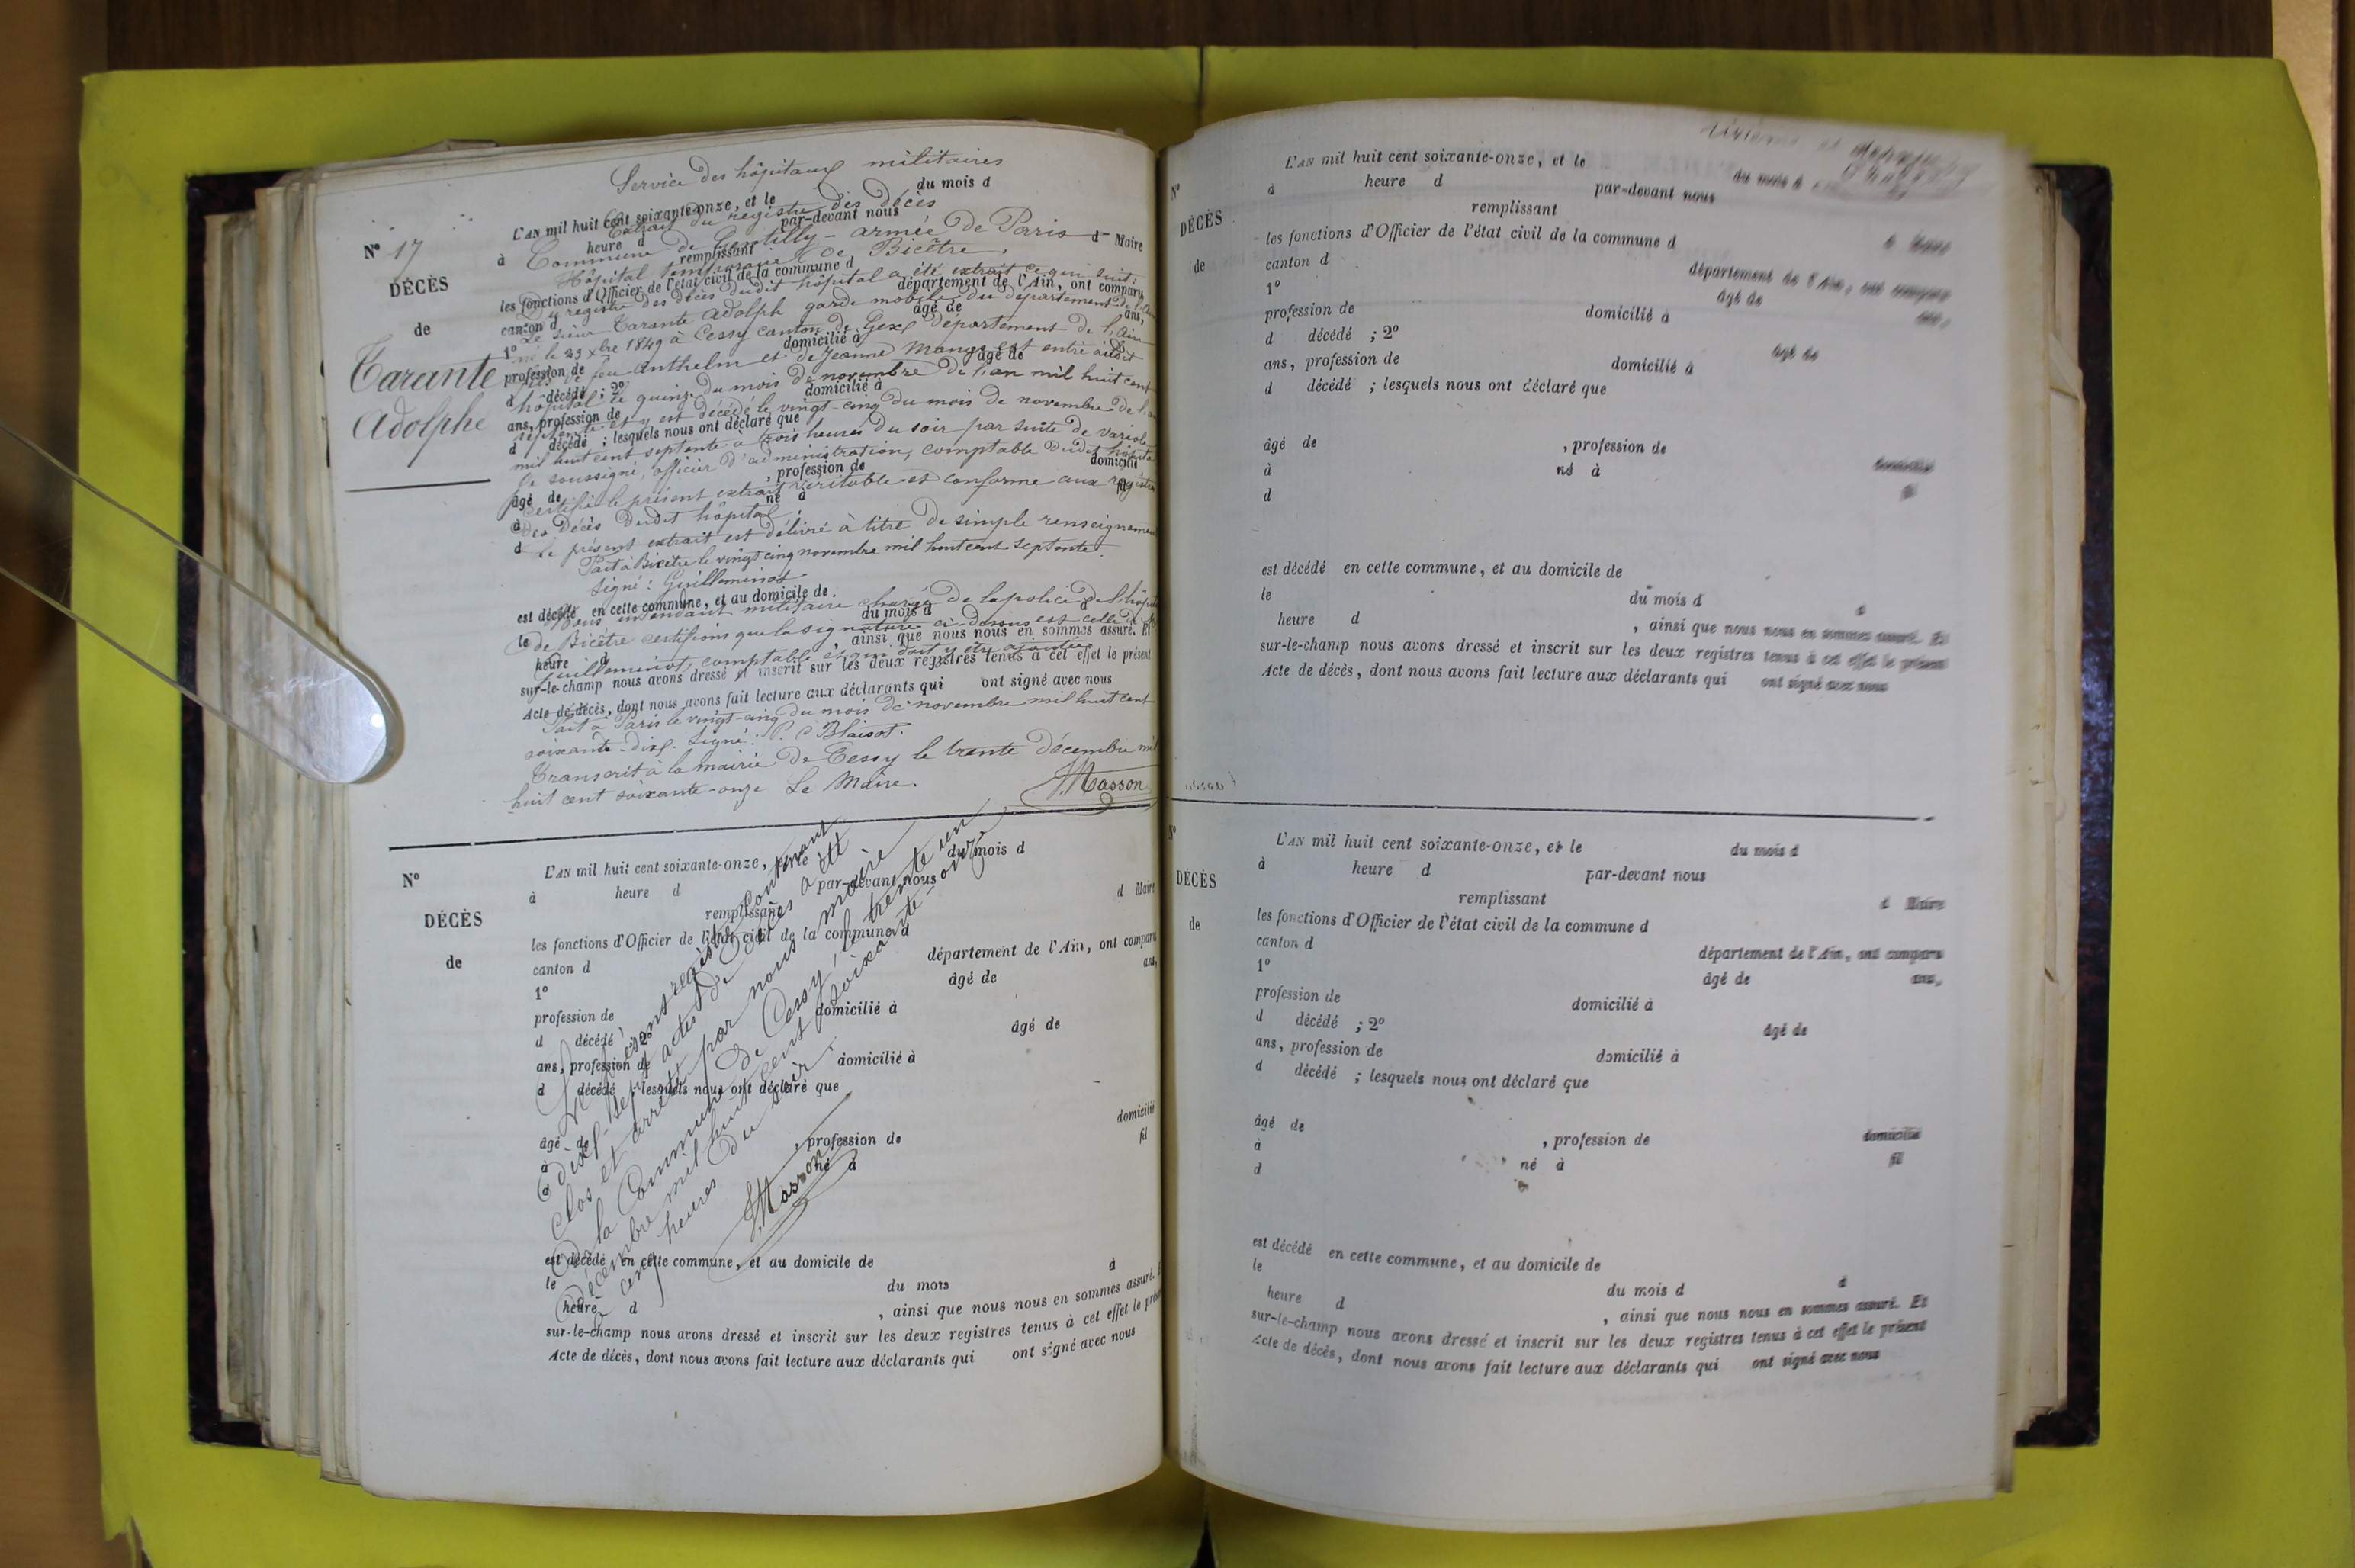 Service des hôpitaux militaires
L'AN mil huit cent soixante-onze, et le du mois d
Extrait du registre des décès
à heure d par-devant nous
Commune de Gentilly - armée de Paris
remplissant d Maire
Hôpital temporaire de Bicêtre.
les fonctions d'Officier de l'état civil de la commune d
Du registre des décès dudit hôpital a été extrait ce qui suit:
canton d département de l'Ain, ont comparu
Le sieur Tarante Adolph garde mobile du département de l'Ain
1° âgé de ans,
né le 23 xbre 1849 à Cessy canton de Gex département de l'Ain
profession de domicilié à
fils de feu Anthelm et de Jeanne est entré audit
d décédé ; 2° âgé de
hôpital le quinze du mois de novembre de l'an mil huit cent
ans, profession de domicilié à
septante et y est décédé le vingt-cinq du mois de novembre de l'an
d décédé ; lesquels nous ont déclaré que
mil huit cent septante à trois heures du soir par suite de variole
Je soussigné, officier d'administration, comptable dudit hôpital
âgé de , profession de domicilié
certifie le présent extrait véritable et conforme aux registres
à né à fil
des décès dudit hôpital.
d
Le présent extrait est délivré à titre de simple renseignement
Fait à Bicêtre le vingt cinq novembre mil huit cent septante.
Signé: Guilleminot
est décédé en cette commune, et au domicile de
Nous intendant militaire chargé de la police de l'hôpital
le du mois d
de Bicêtre certifions que la signature ci-dessus est celle de
heure d , ainsi que nous nous en sommes assuré. Et
Guilleminot, comptable et que doit y être ajoutée
sur-le-champ nous avons dressé et inscrit sur les deux registres tenus à cet effet le présent
Acte de décès, dont nous avons fait lecture aux déclarants qui ont signé avec nous
Fait à Paris le vingt-cinq du mois de novembre mil huit cent
soixante-dix. Signé: Blaisot.
Transcrit à la mairie de Cessy le trente décembre mil
huit cent soixante-onze Le Maire.
Masson
N° 17
DÉCÈS
de
Tarante
Adolphe
N°
DÉCÈS
de
L'AN mil huit cent soixante-onze, et le du mois d
à heure d par-devant nous
remplissant d Maire
les fonctions d'Officier de l'état civil de la commune d
canton d département de l'Ain, ont comparu
1° âgé de ans,
profession de domicilié à
d décédé ; 2° âgé de
ans, profession de domicilié à
d décédé ; lesquels nous ont déclaré que
âgé de , profession de domicilié
à né à fil
d
est décédé en cette commune, et au domicile de
le du mois à
heure d , ainsi que nous nous en sommes assuré. Et
sur-le-champ nous avons dressé et inscrit sur les deux registres tenus à cet effet le présent
Acte de décès, dont nous avons fait lecture aux déclarants qui ont signé avec nous
Le présent registre contenant
dix-sept actes de décès a été
clos et arrêté par nous maire
de la Commune de Cessy, le trente un
décembre mil huit cent soixante-onze
à cinq heures du soir.
Masson
N°
DÉCÈS
de
L'AN mil huit cent soixante-onze, et le du mois d
à heure d par-devant nous
remplissant
les fonctions d'Officier de l'état civil de la commune d d Maire
canton d département de l'Ain, ont comparu
1° âgé de ans,
profession de domicilié à
d décédé ; 2° âgé de
ans, profession de domicilié à
d décédé ; lesquels nous ont déclaré que
âgé de , profession de domicilié
à né à fil
d
est décédé en cette commune, et au domicile de
le du mois d à
heure d , ainsi que nous nous en sommes assuré. Et
sur-le-champ nous avons dressé et inscrit sur les deux registres tenus à cet effet le présent
Acte de décès, dont nous avons fait lecture aux déclarants qui ont signé avec nous
N°
DÉCÈS
de
L'AN mil huit cent soixante-onze, et le du mois d
à heure d par-devant nous
remplissant d Maire
les fonctions d'Officier de l'état civil de la commune d
canton d département de l'Ain, ont comparu
1° âgé de ans,
profession de domicilié à
d décédé ; 2° âgé de
ans, profession de domicilié à
d décédé ; lesquels nous ont déclaré que
âgé de , profession de domicilié
à né à fil
d
est décédé en cette commune, et au domicile de
le du mois d à
heure d , ainsi que nous nous en sommes assuré. Et
sur-le-champ nous avons dressé et inscrit sur les deux registres tenus à cet effet le présent
Acte de décès, dont nous avons fait lecture aux déclarants qui ont signé avec nous